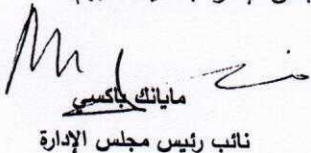 مايانك باكسي
نائب رئيس مجلس الإدارة